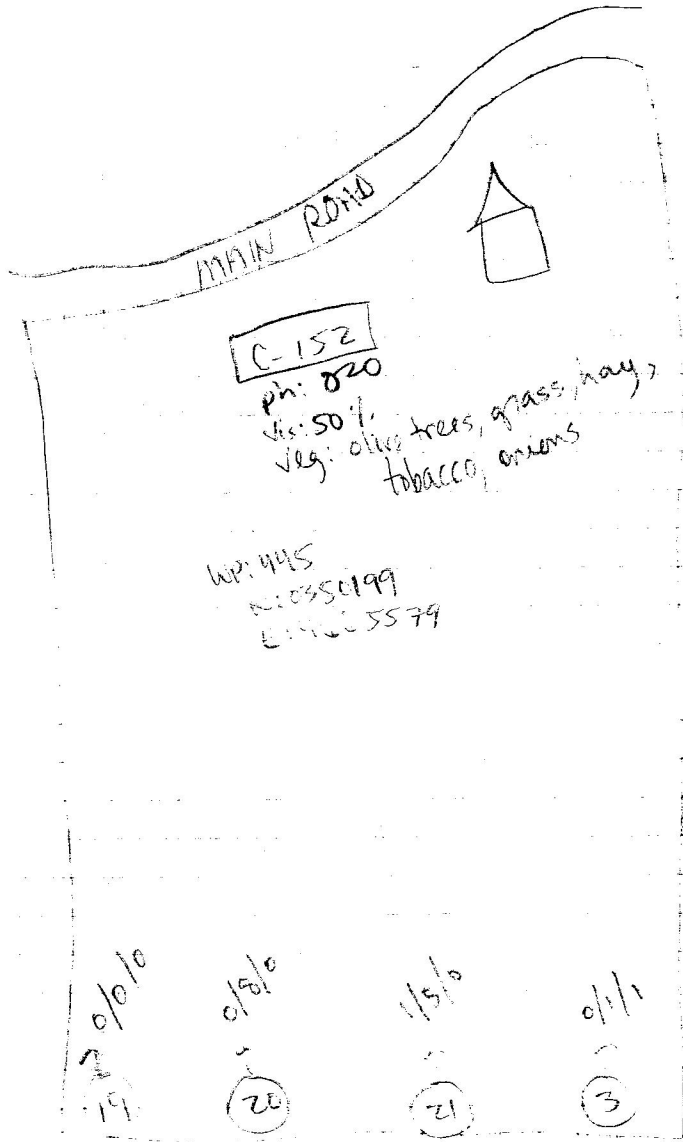 MAIN ROAD
C-152
ph: 020
vis: 50%
veg: olive trees, grass, hay,
tobacco, onions
WP: 445
N: 0350199
5579
0/0/0
0/8/0
1/5/0
0/1/1
19
20
21
3